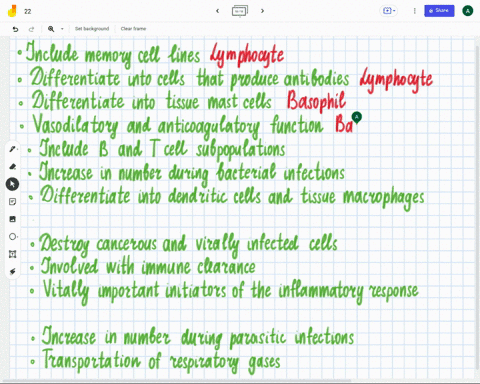 22
Share
A
Set background
Clear frame
• Include memory cell lines Lymphocyte
• Differentiate into cells that produce antibodies Lymphocyte
• Differentiate into tissue mast cells Basophil
• Vasodilatory and anticoagulatory function Ba
A
• Include B and T cell subpopulations
• Increase in number during bacterial infections
• Differentiate into dendritic cells and tissue macrophages
• Destroy cancerous and virally infected cells
• Involved with immune clearance
• Vitally important initiators of the inflammatory response
• Increase in number during parasitic infections
• Transportation of respiratory gases